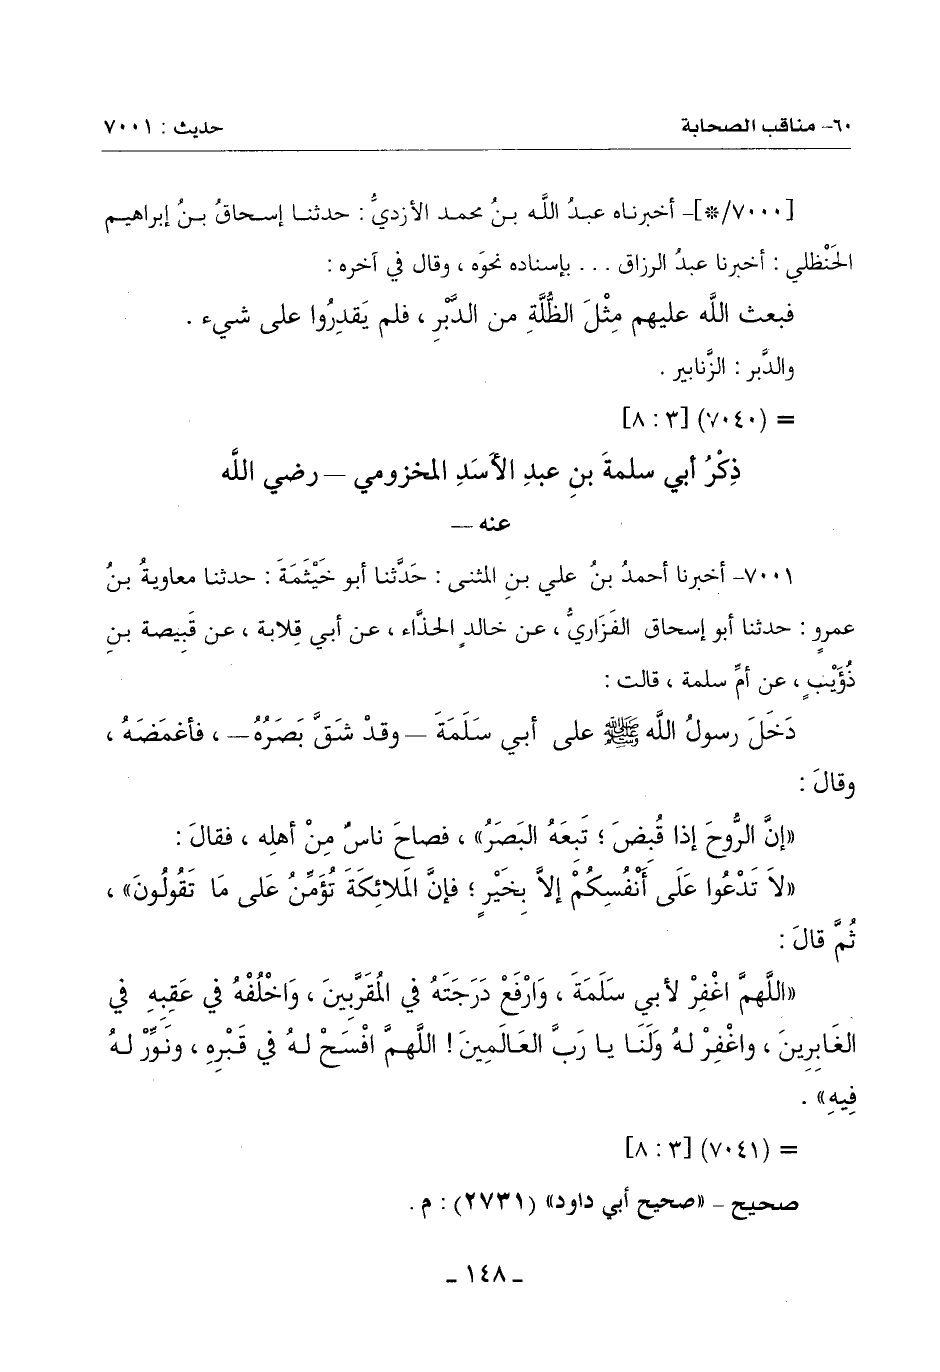 ٦٠- مناقب الصحابة حديث : ٧٠٠١
[٧٠٠٠/*]- أخبرناه عبدُ اللَّه بنُ محمد الأزديُّ : حدثنا إسحاقُ بنُ إبراهيم
الحَنْظلي : أخبرنا عبدُ الرزاق ... بإسناده نحوَه ، وقال في آخره :
فبعث اللَّه عليهم مِثْلَ الظُّلَّةِ من الدَّبْرِ ، فلم يَقدِرُوا على شيء .
والدَّبر : الزَّنابير .
= (٧٠٤٠) [٣ : ٨]
ذِكْرُ أبي سلمةَ بنِ عبدِ الأَسَدِ المخزومي – رضي اللَّه
عنه –
٧٠٠١- أخبرنا أحمدُ بنُ علي بنِ المثنى : حَدَّثنا أبو خَيْثَمَةَ : حدثنا معاويةُ بنُ
عمرٍو : حدثنا أبو إسحاق الفَزَاريُّ ، عن خالدٍ الحذَّاء ، عن أبي قِلابة ، عن قَبِيصة بنِ
ذُؤَيْبٍ ، عن أمِّ سلمة ، قالت :
دَخَلَ رسولُ اللَّه ﷺ على أبي سَلَمَةَ –وقدْ شَقَّ بَصَرُهُ– ، فأغمَضَهُ ،
وقالَ :
«إنَّ الرُّوحَ إذا قُبِضَ ؛ تَبِعَهُ البَصَرُ» ، فصاحَ ناسٌ مِنْ أهلِه ، فقالَ :
«لاَ تَدْعُوا عَلَى أَنْفُسِكُمْ إلاَّ بِخَيْرٍ ؛ فإنَّ المَلائِكَةَ تُؤَمِّنُ عَلى مَا تَقُولُونَ» ،
ثُمَّ قالَ :
«اللَّهمَّ اغْفِرْ لأبي سَلَمَةَ ، وَارْفَعْ دَرَجَتَهُ في المُقَرَّبينَ ، وَاخْلُفْهُ في عَقِبِهِ في
الغَابِرِينَ ، واغْفِرْ لهُ وَلَنَا يا رَبَّ العَالَمِينَ! اللَّهمَّ افْسَحْ لهُ في قَبْرِهِ ، ونَوِّرْ لهُ
فِيهِ» .
= (٧٠٤١) [٣ : ٨]
صحيح – «صحيح أبي داود» (٢٧٣١) : م .
- ١٤٨ -